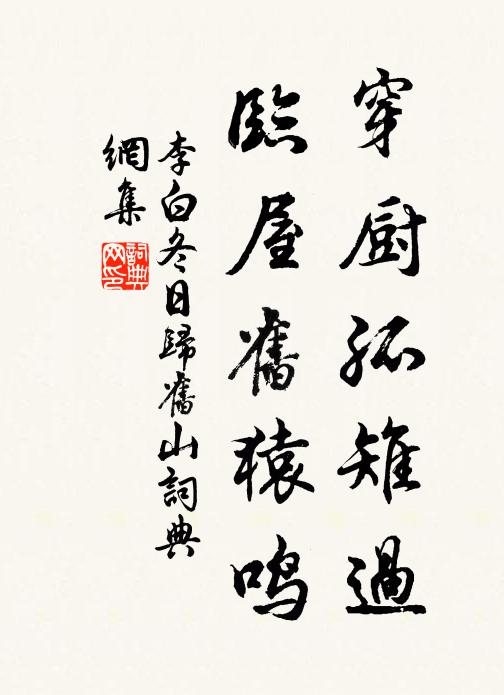 穿厨孤雉過
臨屋舊猿鳴
李白冬日歸舊山詞典
網集
詞典網印